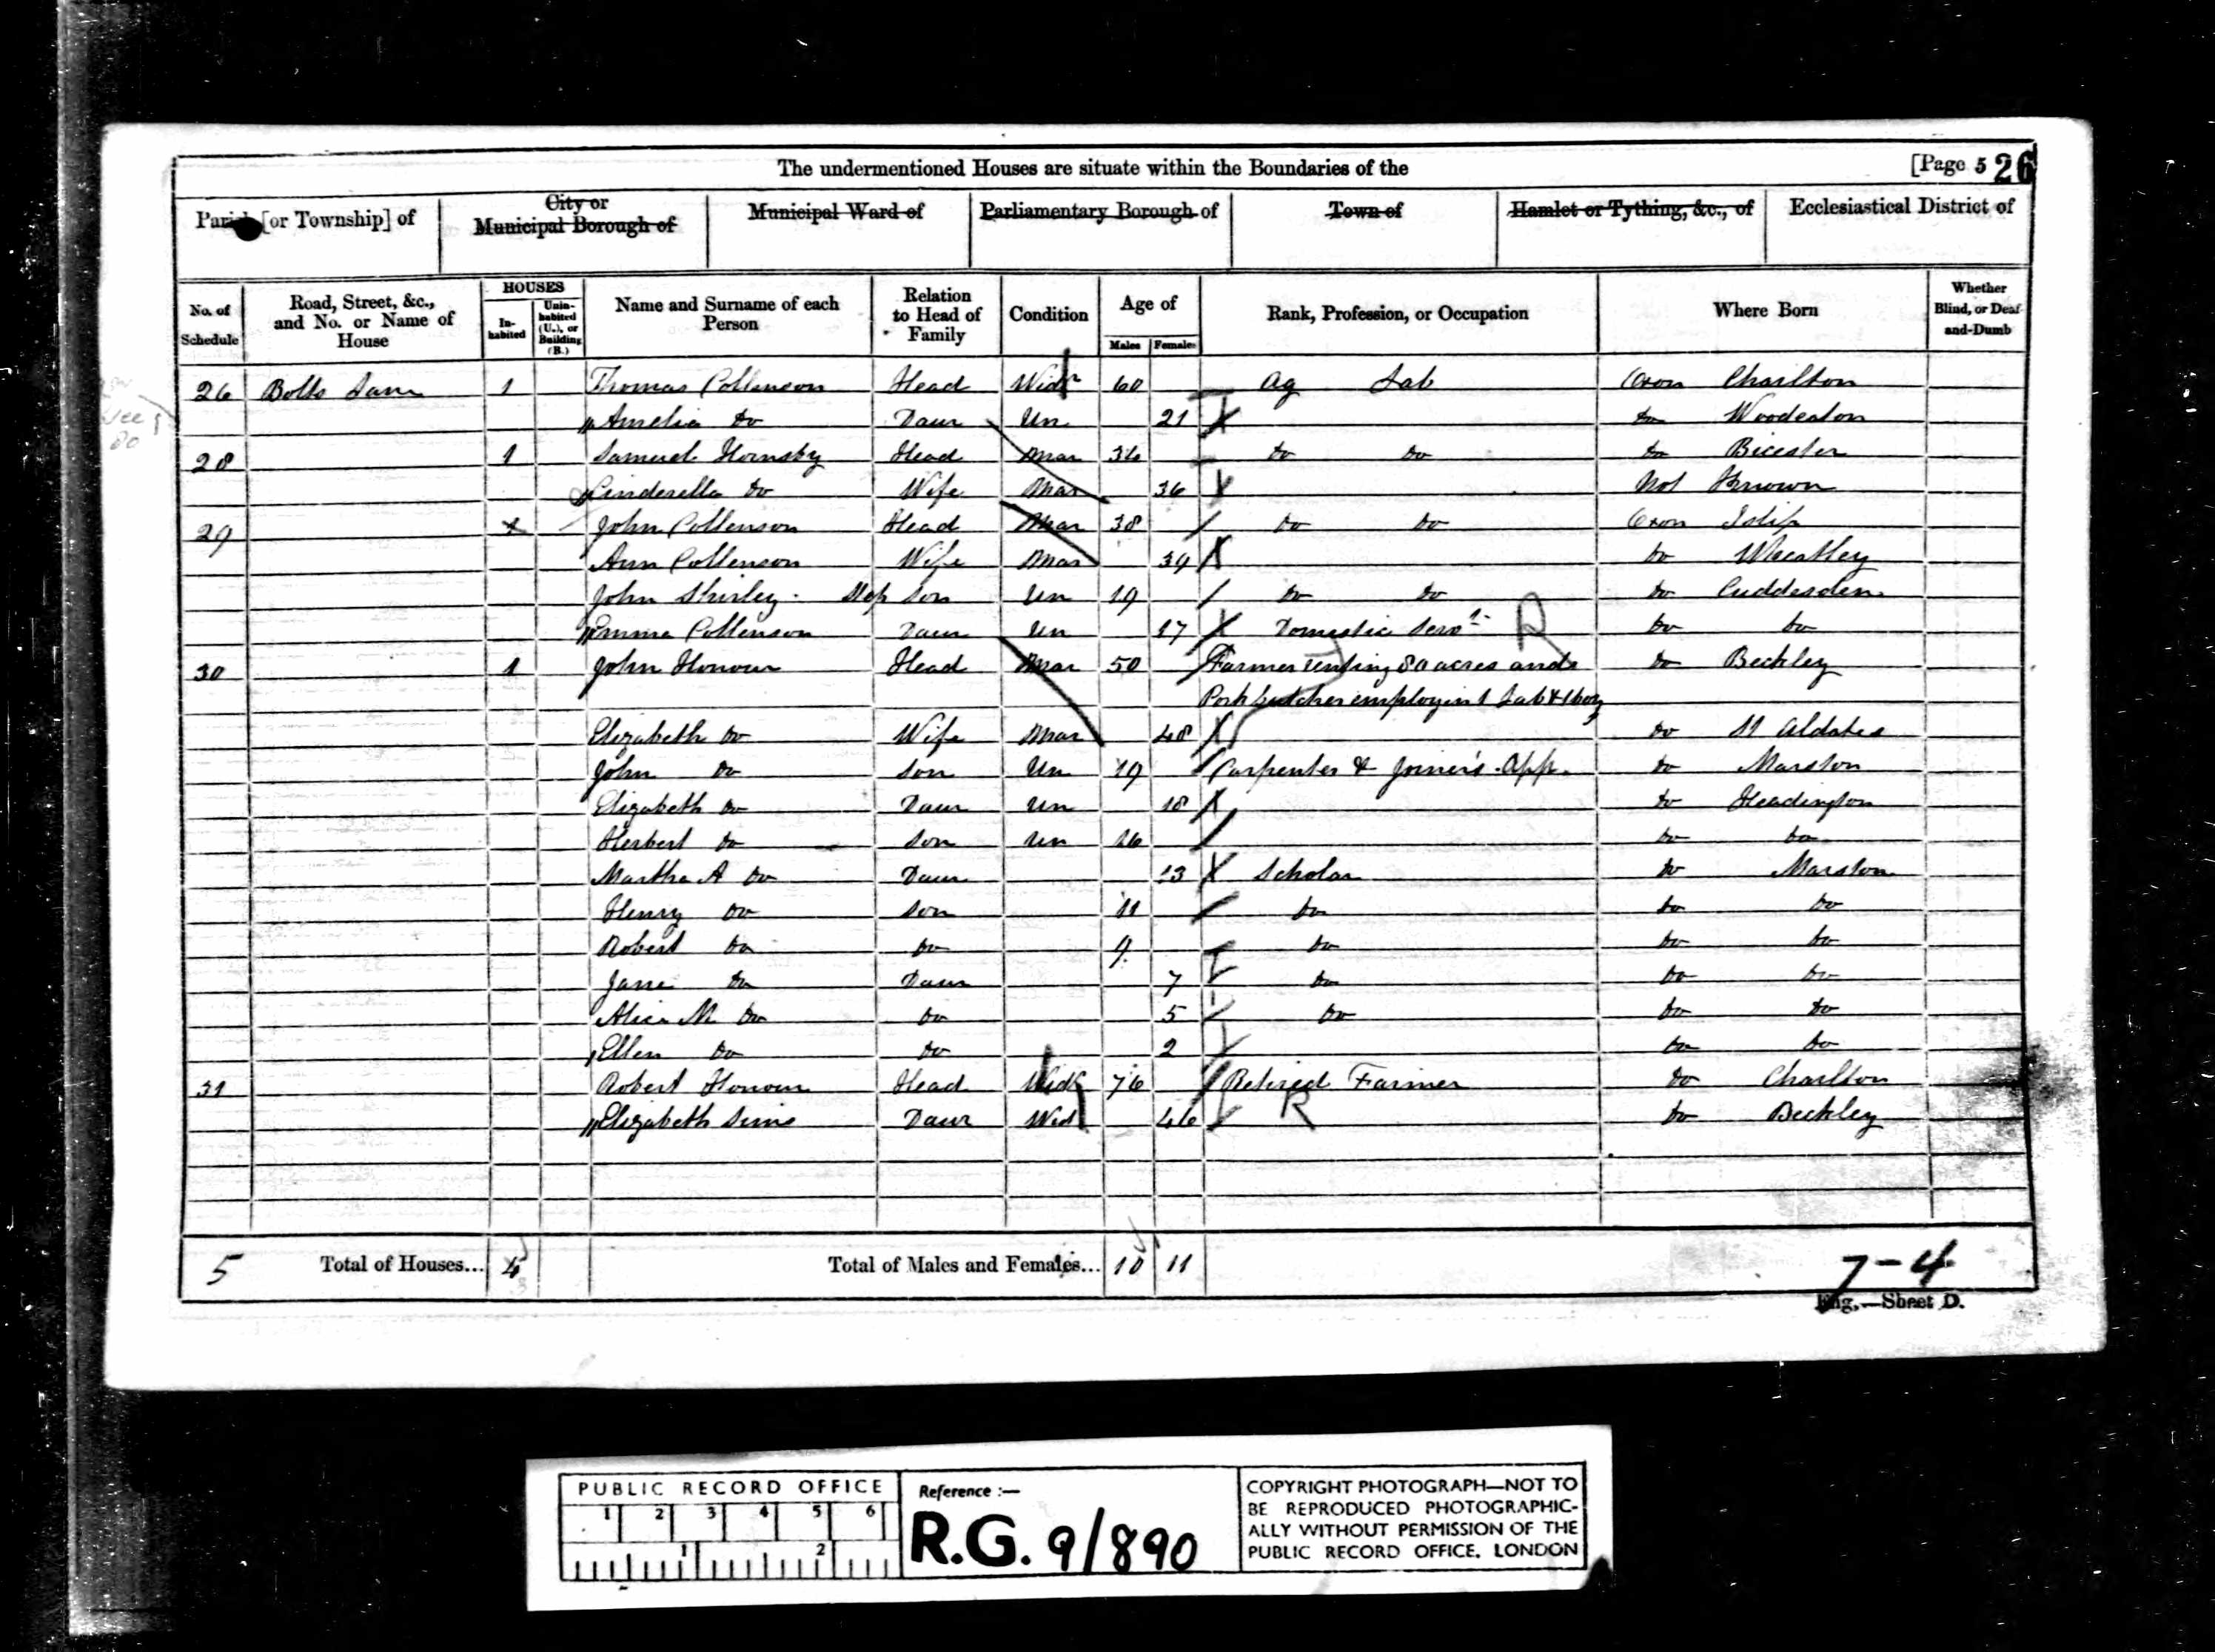 The undermentioned Houses are situate within the Boundaries of the [Page 5 26
Parish [or Township] of City or Municipal Borough of Municipal Ward of Parliamentary Borough of Town of Hamlet or Tything, &c., of Ecclesiastical District of
No. of Schedule Road, Street, &c., and No. or Name of House HOUSES Inhabited Uninhabited (U.), or Building (B.) Name and Surname of each Person Relation to Head of Family Condition Age of Males Females Rank, Profession, or Occupation Where Born Whether Blind, or Deaf-and-Dumb
26 Bolts Lane 1 Thomas Collenson Head Widr 60 Ag Lab Oxon Charlton
Amelia Do Daur Un 21 Do Woodeaton
28 1 Samuel Hornsby Head Mar 36 Do Do Do Bicester
Cinderella Do Wife Mar 36 Not Known
29 John Collenson Head Mar 38 Do Do Oxon Islip
Ann Collenson Wife Mar 39 Do Wheatley
John Shirley Step Son Un 19 Do Do Do Cuddesden
Emma Collenson Daur Un 17 Domestic Servt R Do Do
30 1 John Honour Head Mar 50 Farmer renting 80 acres and Do Beckley
Pork butcher employin 1 Lab & 1 boy
Elizabeth Do Wife Mar 48 Do St Aldates
John Do Son Un 19 Carpenter & Joiner's App. Do Marston
Elizabeth Do Daur Un 18 Do Headington
Herbert Do Son Un 16 Do Do
Martha A Do Daur 13 Scholar Do Marston
Henry Do Son 11 Do Do Do
Robert Do Do 9 Do Do Do
Jane Do Daur 7 Do Do Do
Alice M Do Do 5 Do Do Do
Ellen Do Do 2 Do Do
31 Robert Honour Head Widr 76 Retired Farmer Do Charlton
Elizabeth Sims Daur Wid 46 R Do Beckley
5 Total of Houses... 4 Total of Males and Females... 10 11 7-4
Eng.—Sheet D.
PUBLIC RECORD OFFICE
1 2 3 4 5 6
1 2
Reference :—
R.G. 9/890
COPYRIGHT PHOTOGRAPH—NOT TO
BE REPRODUCED PHOTOGRAPHIC-
ALLY WITHOUT PERMISSION OF THE
PUBLIC RECORD OFFICE. LONDON